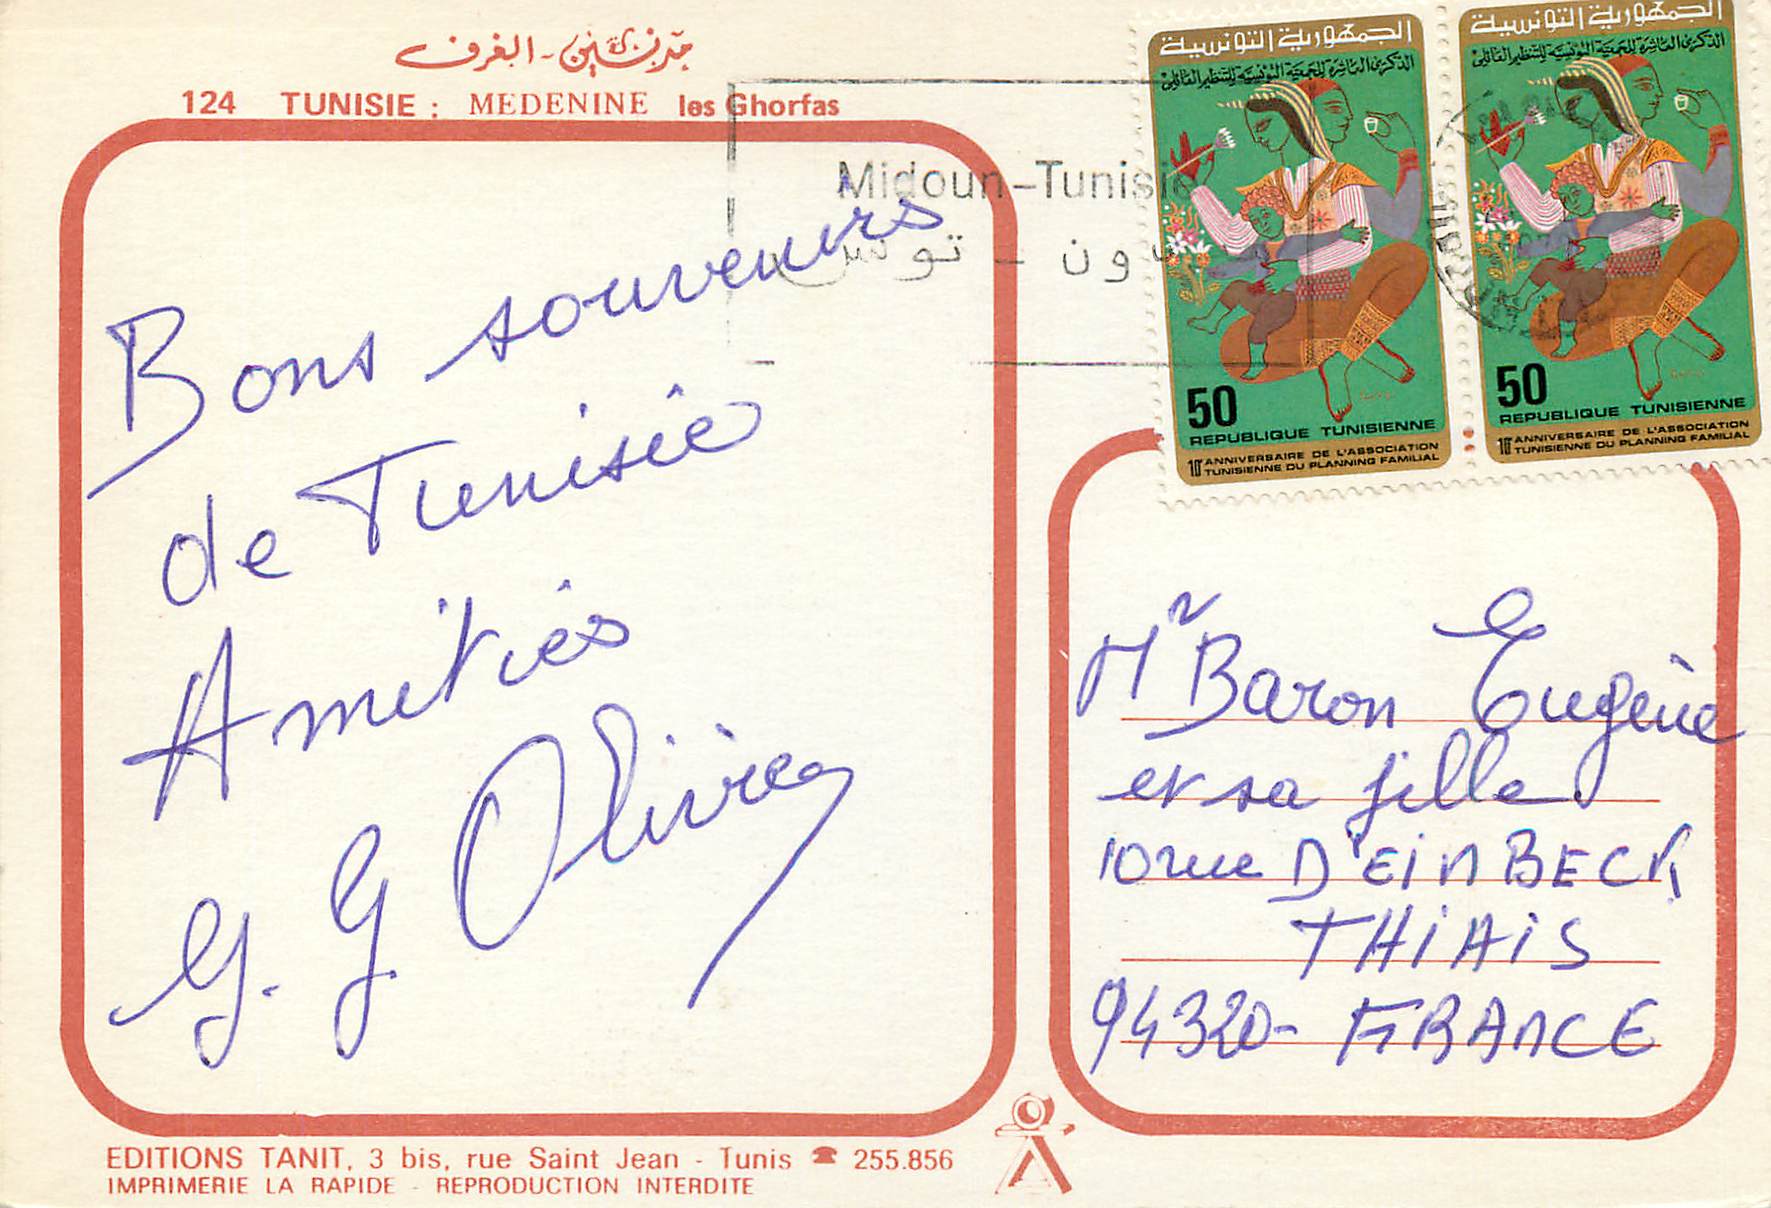 مدنين - الغرف
124 TUNISIE : MEDENINE les Ghorfas
Midoun-Tunisie
ون - تونس
الجمهورية التونسية
الذكرى العاشرة للجمعية التونسية للتنظيم العائلي
50
REPUBLIQUE TUNISIENNE
10E ANNIVERSAIRE DE L'ASSOCIATION
TUNISIENNE DU PLANNING FAMILIAL
الجمهورية التونسية
الذكرى العاشرة للجمعية التونسية للتنظيم العائلي
50
REPUBLIQUE TUNISIENNE
10E ANNIVERSAIRE DE L'ASSOCIATION
TUNISIENNE DU PLANNING FAMILIAL
Bons souvenirs
de Tunisie
Amitiés
G. G Olivier
Mr Baron Eugène
et sa fille
10 rue D'EiNBECK
THiAiS
94320- FRANCE
EDITIONS TANIT, 3 bis, rue Saint Jean - Tunis ☎ 255.856
IMPRIMERIE LA RAPIDE - REPRODUCTION INTERDITE